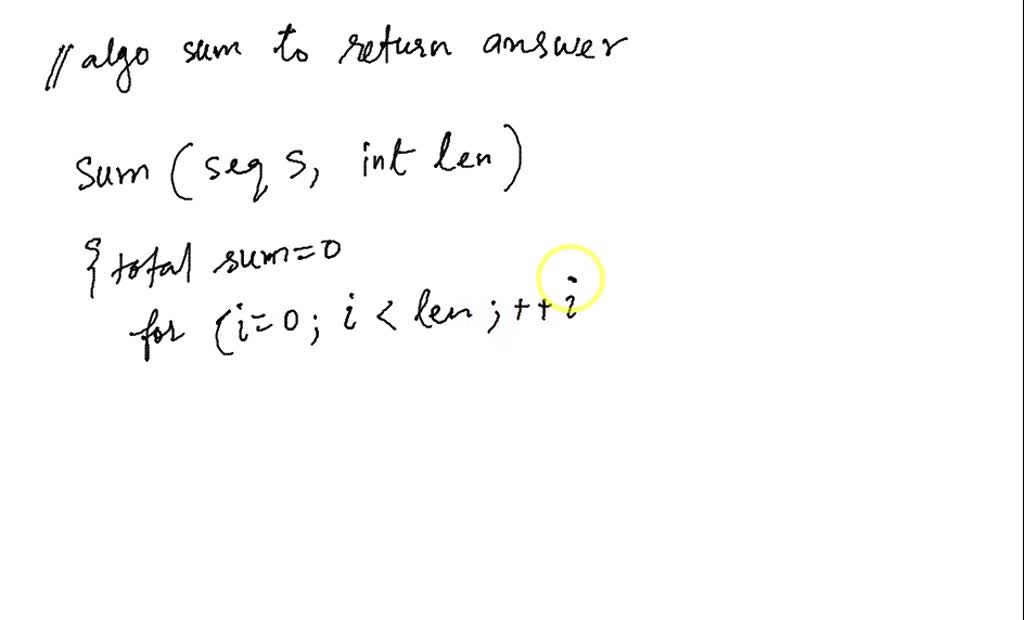 // algo sum to return answer
Sum (seq s, int len)
{ total sum=0
for (i=0; i < len ; ++i